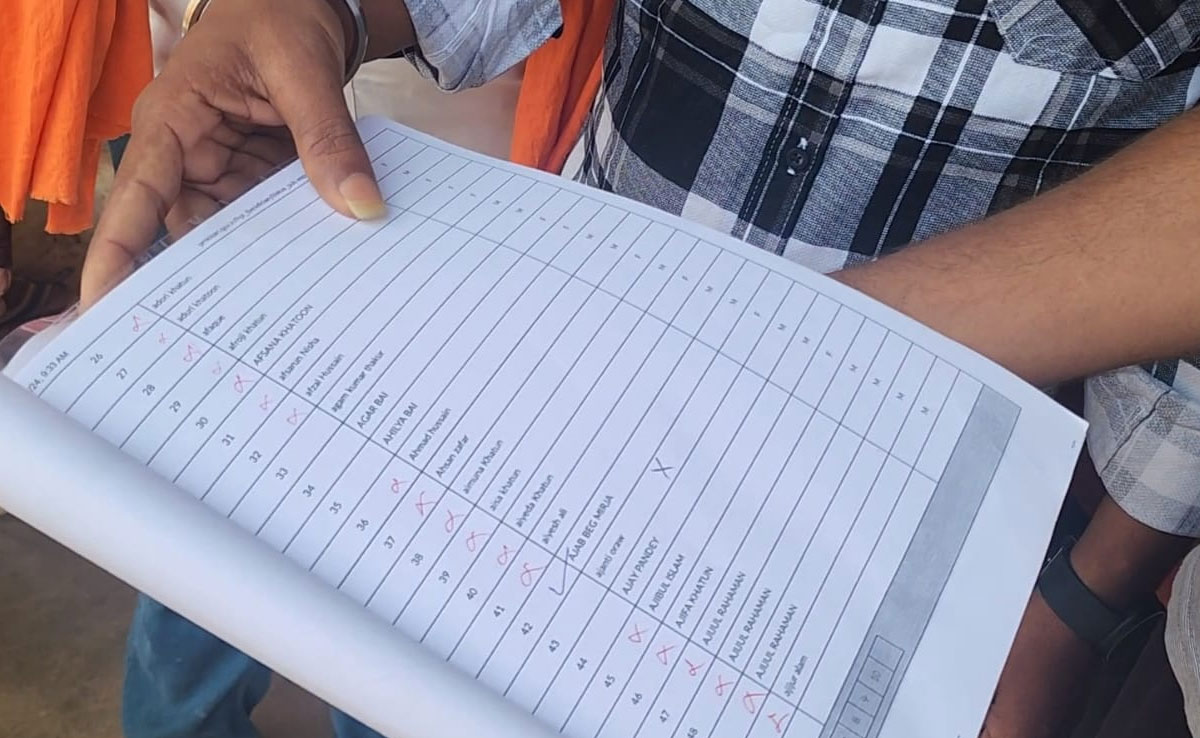 /24, 9:33 AM
26 adori khatun
27 aduri khatoon F
28 afaque M
29 afroji khatun F
30 AFSANA KHATOON F
31 afsarun Nisha F
32 afzal Hussain M
33 agam kumar thakur M
34 AGAR BAI F
35 AHILYA BAI F
36 Ahmad hussain M
37 Ahsan zafar M
38 aimuna Khatun F
39 aisa khatun M
40 aiyeda Khatun F
41 aiyesh ali M
42 AJAB BEG MIRJA M
43 ajanti oraw F
44 AJAY PANDEY M
45 AJIBUL ISLAM M
46 AJIFA KHATUN F
47 AJIJUL RAHAMAN M
48 AJIJUL RAHAMAN M
AJIJUL RAHAMAN M
ajijur alam M
8 9 10